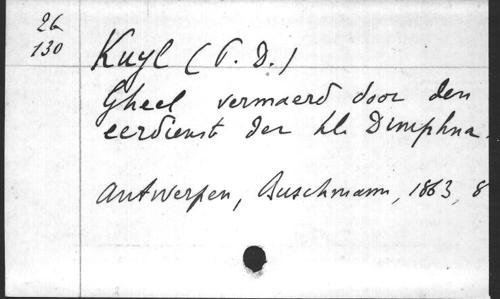 26
130
Kuyl (P. D.)
Gheel vermaerd door den
eerdienst der hl. Dimphna.
Antwerpen, Buschmann, 1863, 8